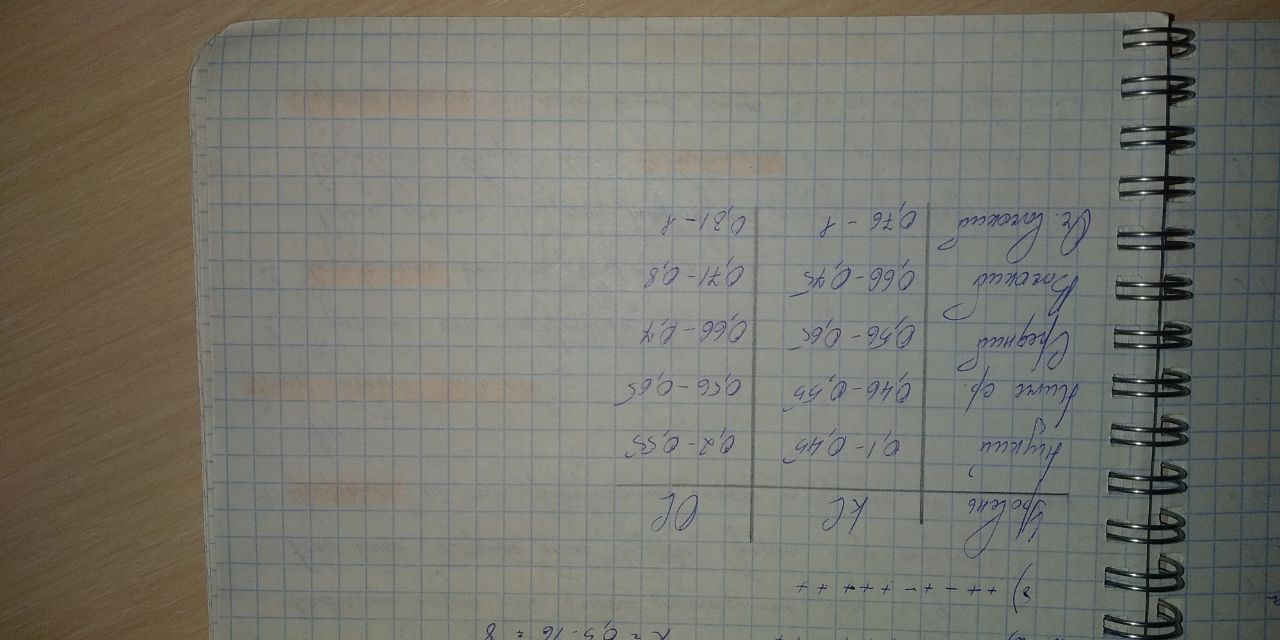 = 0,5 · 16 = 8
3) + + - + - + + + + +
Уровень КС ОС
Низкий 0,1 - 0,45 0,2 - 0,55
Ниже ср. 0,46 - 0,55 0,56 - 0,65
Средний 0,56 - 0,65 0,66 - 0,7
Высокий 0,66 - 0,75 0,71 - 0,8
Оч. высокий 0,76 - 1 0,81 - 1